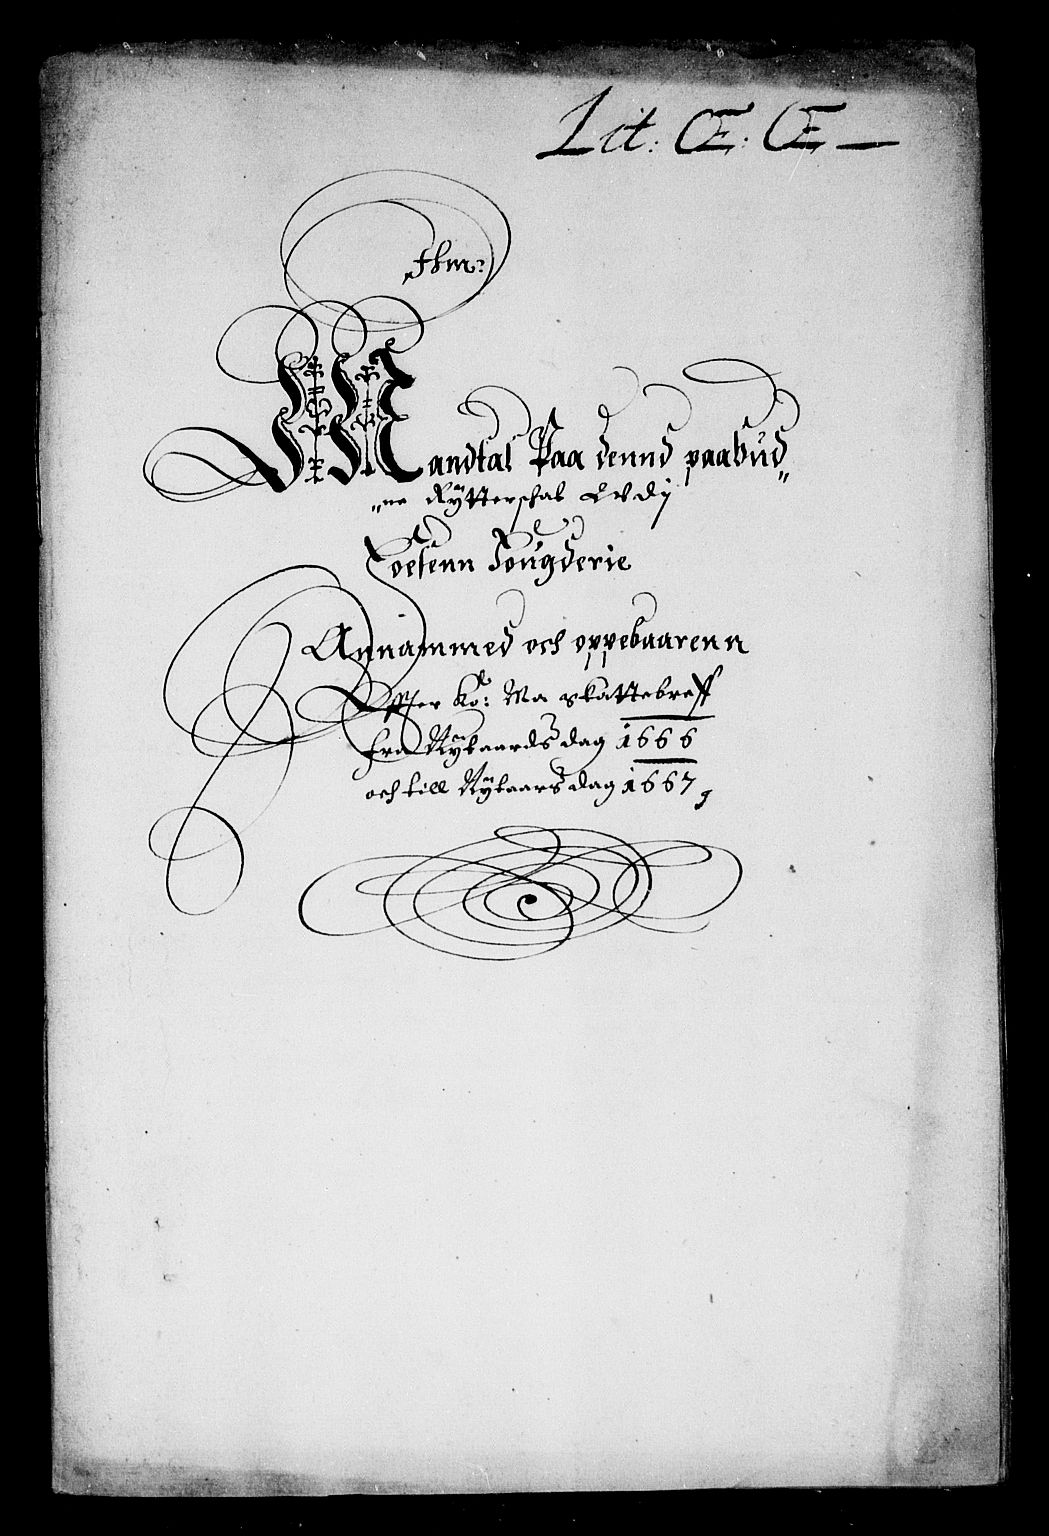 Lit: Œ: Œ
Thm:
Mandtal Paa denne paabud
ne Rytterschab Udj
Totenn Fougderie
Annammed och oppebaarenn
Effter Ko: Ma skattebreff
fra Nÿtaardsdag 1666
och till Nÿtaarsdag 1667